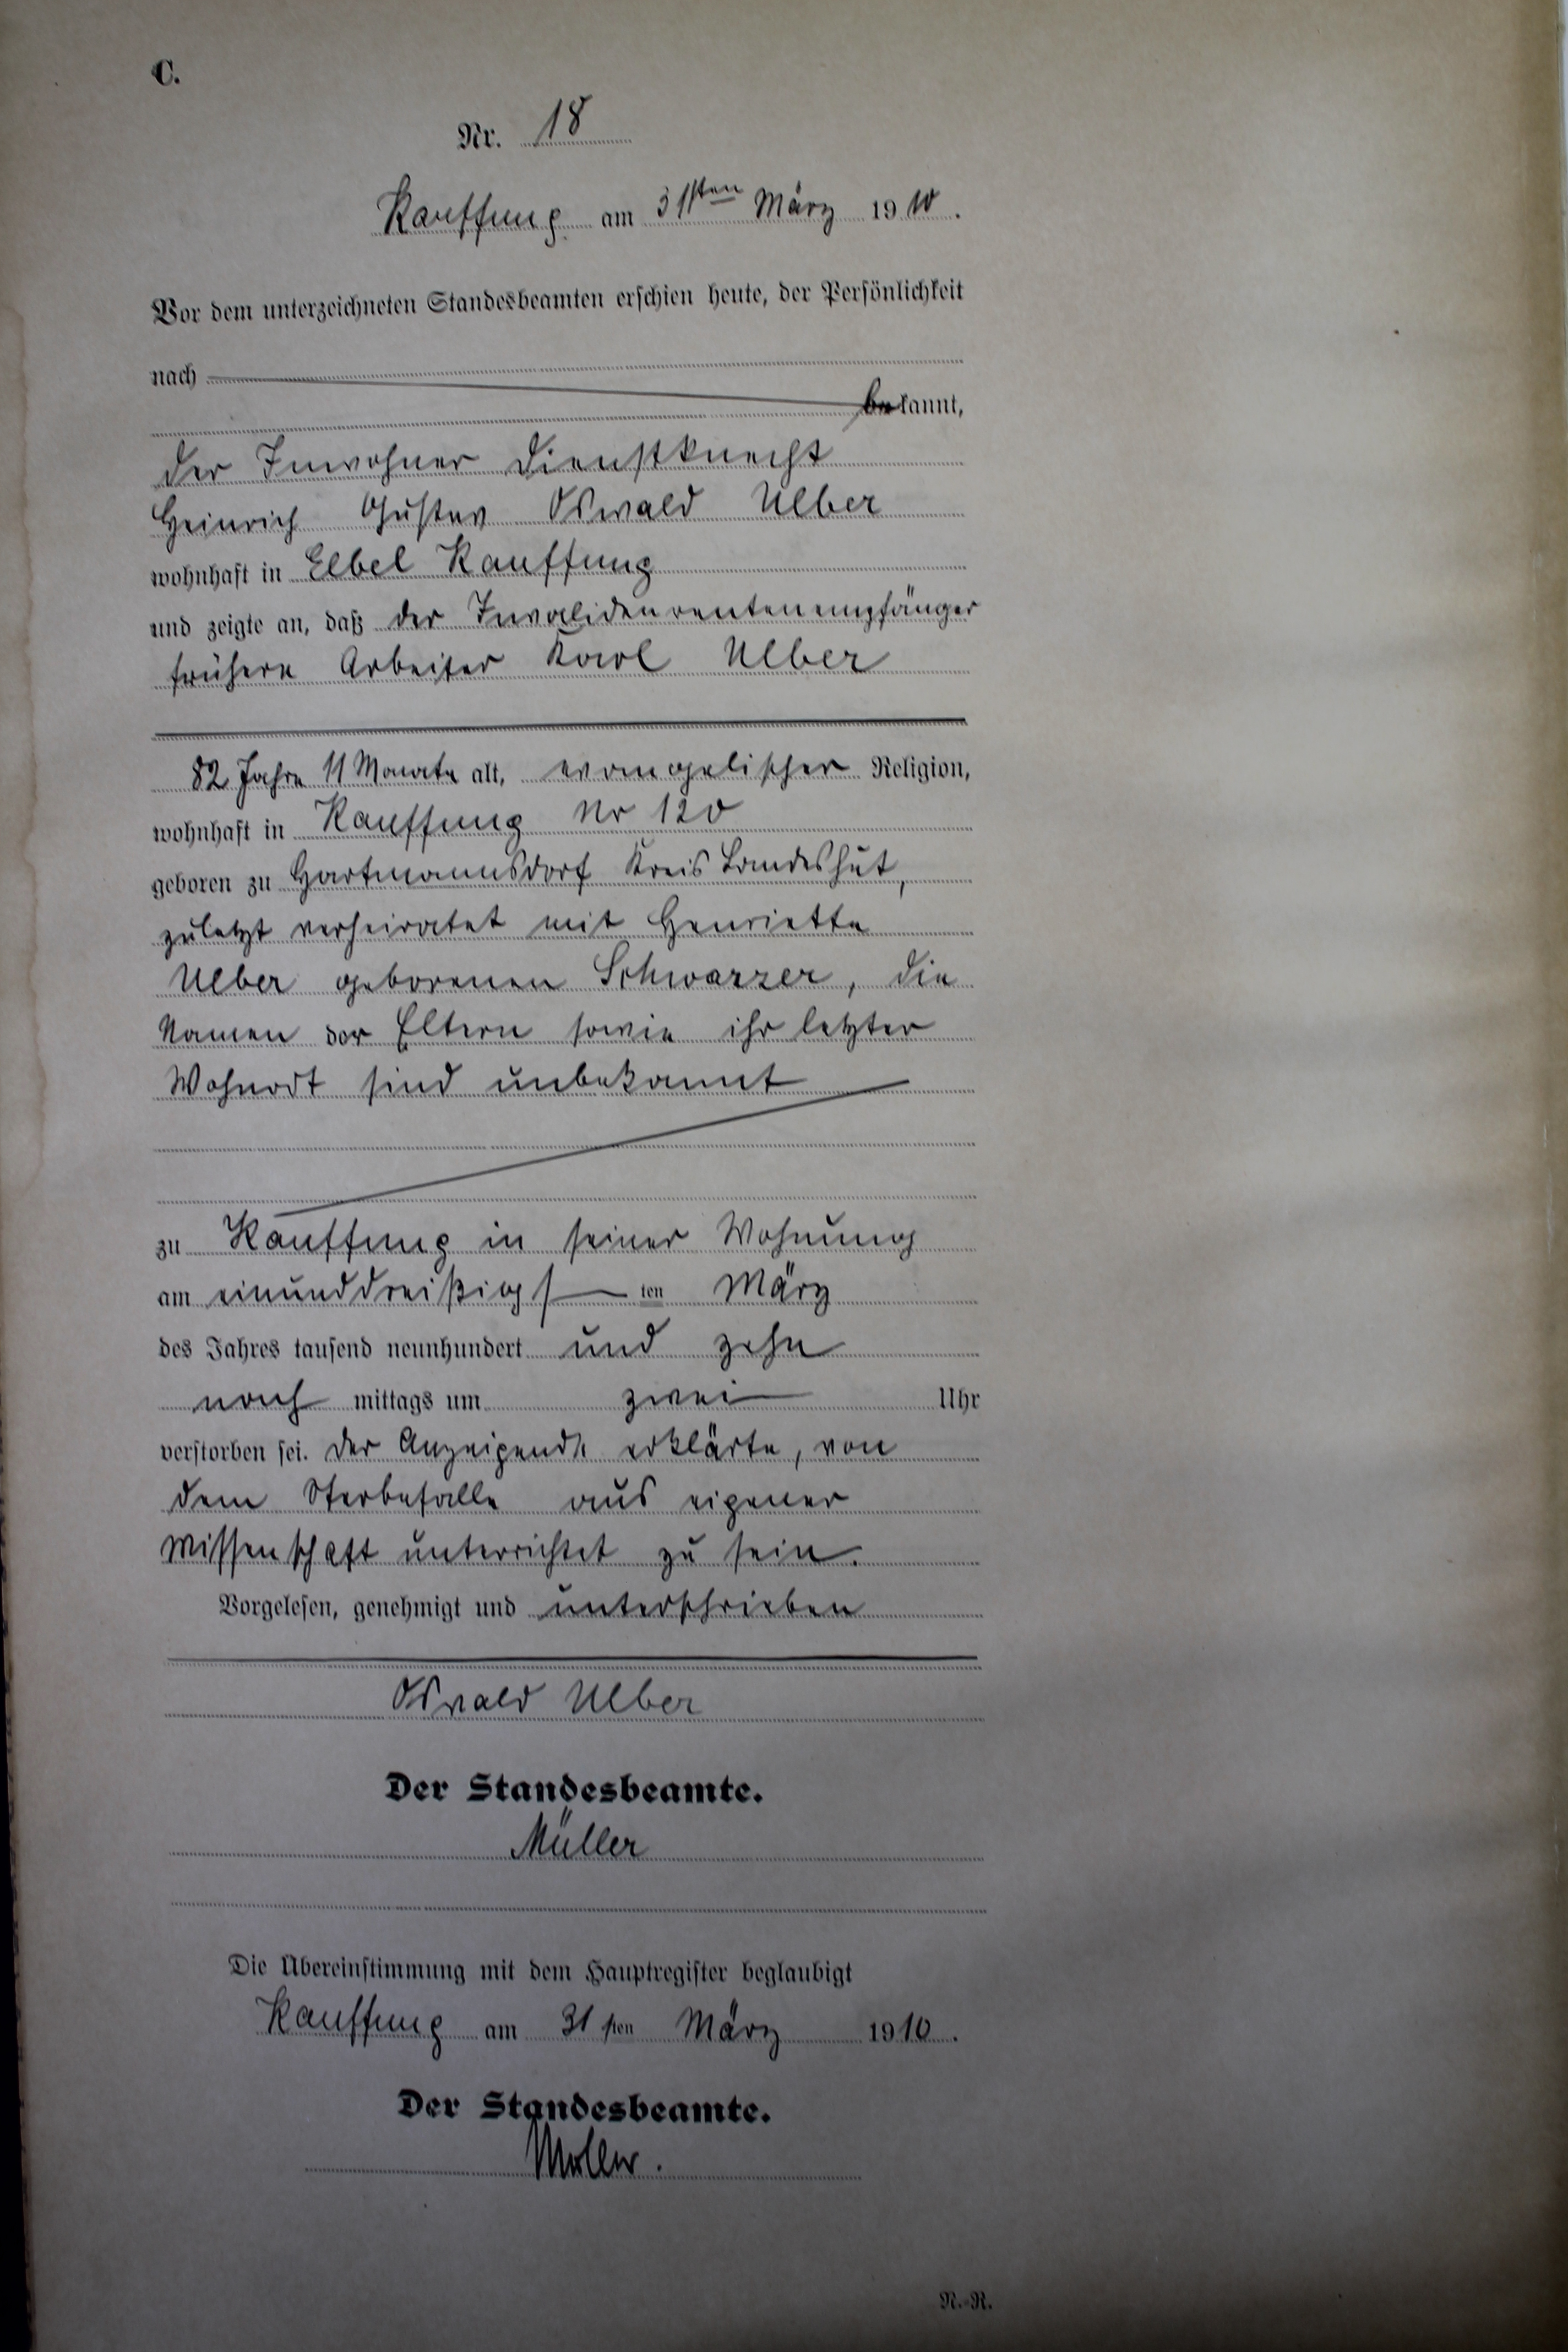 C.
Nr. 18
Kauffung am 31sten März 1910.
Vor dem unterzeichneten Standesbeamten erschien heute, der Persönlichkeit
nach
bekannt,
der Inwohner Dienstknecht
Heinrich Gustav Oswald Ulber
wohnhaft in Elbel Kauffung
und zeigte an, daß der Invalidenrentenempfänger
frühere Arbeiter Karl Ulber
82 Jahre 11 Monate alt, evangelischer Religion,
wohnhaft in Kauffung Nr 120
geboren zu Hartmannsdorf Kreis Landeshut,
zuletzt verheiratet mit Henriette
Ulber geborenen Schwarzer, die
Namen der Eltern sowie ihr letzter
Wohnort sind unbekannt
zu Kauffung in seiner Wohnung
am einunddreißigsten März
des Jahres tausend neunhundert und zehn
nach mittags um zwei Uhr
verstorben sei. Der Anzeigende erklärte, von
dem Sterbefalle aus eigener
Wissenschaft unterrichtet zu sein.
Vorgelesen, genehmigt und unterschrieben
Oswald Ulber
Der Standesbeamte.
Müller
Die Übereinstimmung mit dem Hauptregister beglaubigt
Kauffung am 31sten März 1910.
Der Standesbeamte.
Müller.
N.-R.